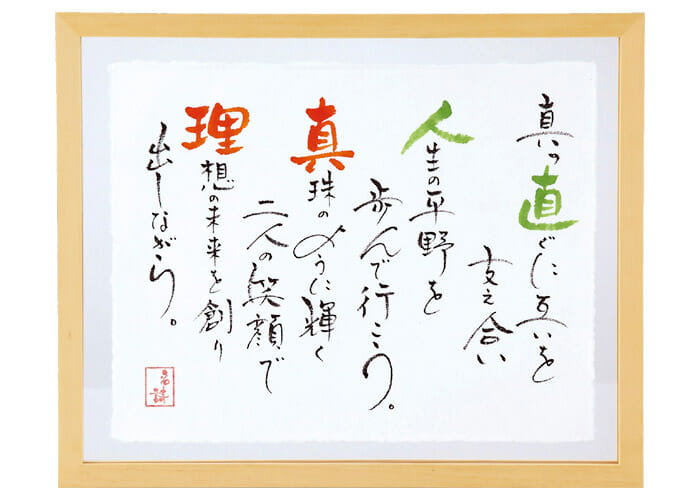 真っ直ぐにお互いを
支え合い
人生の平野を
歩んで行こう。
真珠のように輝く
二人の笑顔で
理想の未来を創り
出しながら。